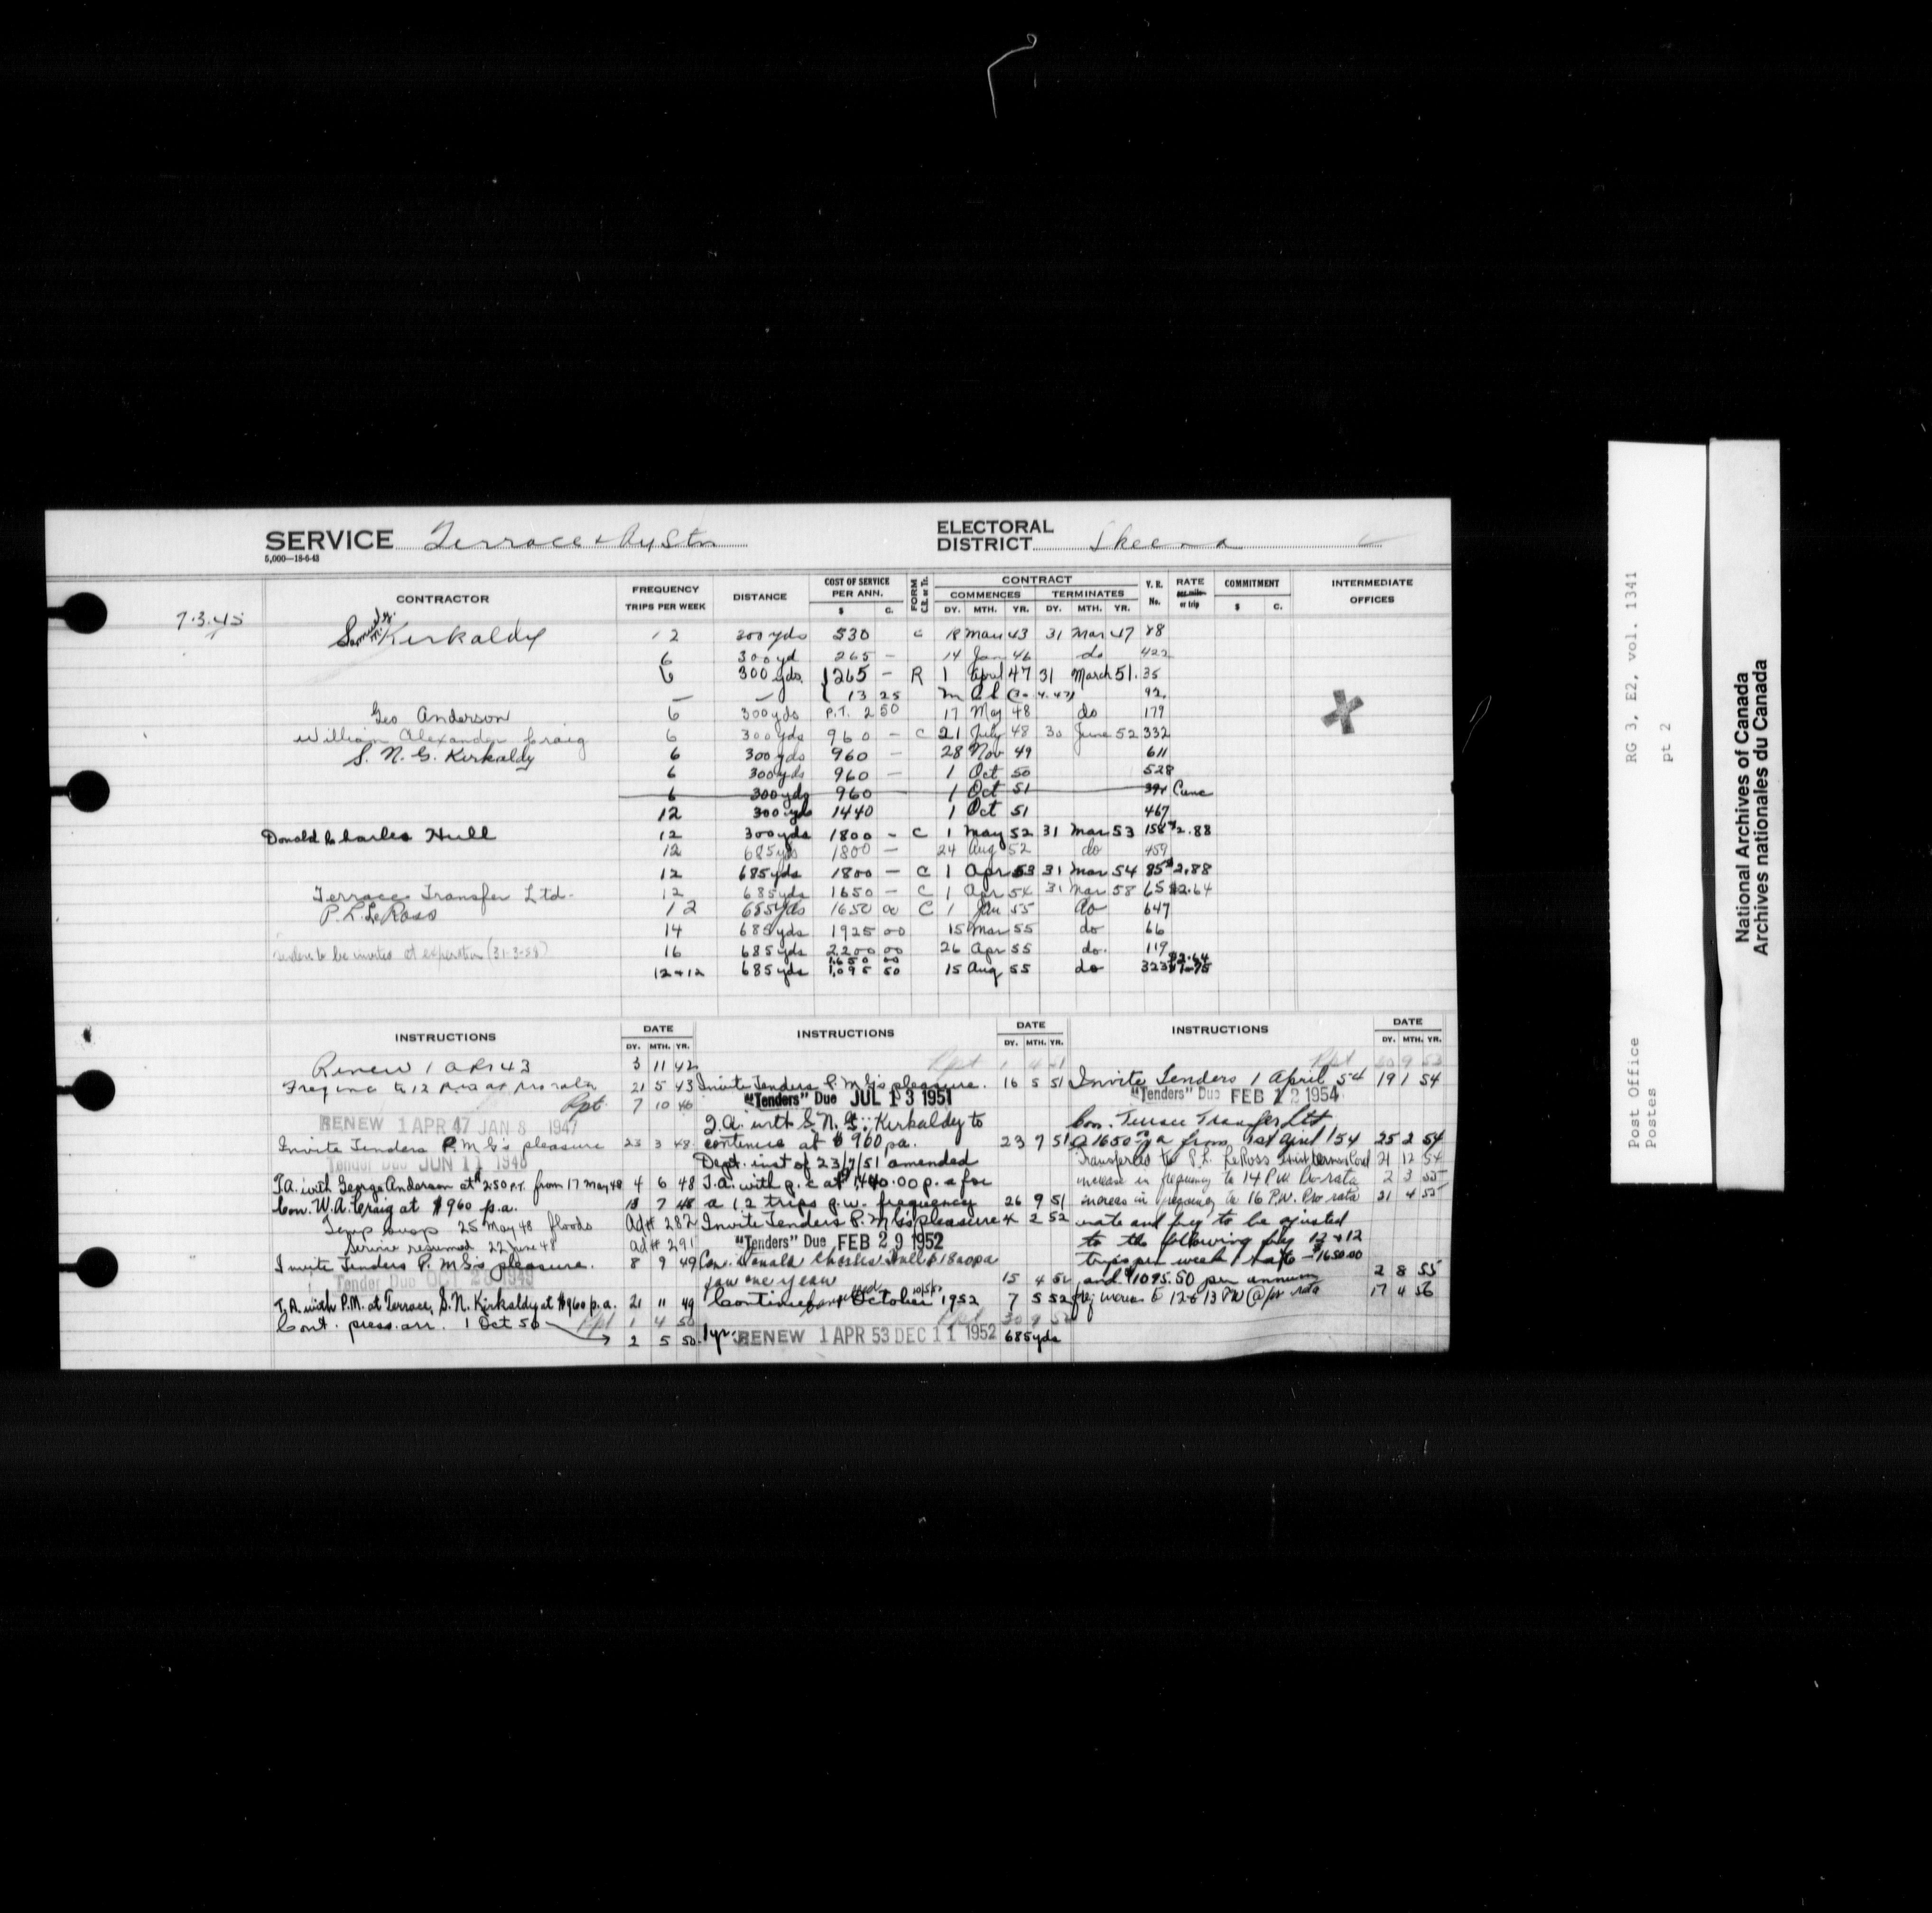 SERVICE Terrace & Ry Stn
5,000—18-6-43
ELECTORAL DISTRICT Skeena
CONTRACTOR FREQUENCY TRIPS PER WEEK DISTANCE COST OF SERVICE PER ANN. $ C. FORM CONTRACT COMMENCES DY. MTH. YR. TERMINATES DY. MTH. YR. V. R. No. RATE per mile or trip COMMITMENT $ C. INTERMEDIATE OFFICES
7.3.45
Kirkaldy 12 300 yds 530 C 18 Mar 43 31 Mar 47 88
6 300 yd 265 — 14 Jan 46 do 422
6 300 yds. 265 — R 1 April 47 31 March 51. 35
— — 13 25 92.
Geo Anderson 6 300 yds P.T. 2 50 17 May 48 do 179
William Alexander Craig 6 300 yds 960 — C 21 July 48 30 June 52 332
S. N. G. Kirkaldy 6 300 yds 960 — 28 Nov 49 611
6 300 yds 960 — 1 Oct 50 528
6 300 yds 960 1 Oct 51 394 Canc
12 300 yds 1440 1 Oct 51 467
Donald Charles Hull 12 300 yds 1800 — C 1 May 52 31 Mar 53 158 $2.88
12 685 yds 1800 — 24 Aug 52 do 459
12 685 yds 1800 — C 1 Apr 53 31 Mar 54 85 $2.88
Terrace Transfer Ltd. 12 685 yds 1650 — C 1 Apr 54 31 Mar 58 65 $2.64
P. L. LeRoss 12 685 yds 1650 00 C 1 Jan 55 do 647
14 685 yds 1925 00 15 Mar 55 do 66
Tenders to be invited at expiration (31-3-58) 16 685 yds 2200 00 26 Apr 55 do. 119
12+12 685 yds 1,650 00 1,095 50 15 Aug 55 do 323 $2.64 $1.75
INSTRUCTIONS DATE DY. MTH. YR. INSTRUCTIONS DATE DY. MTH. YR. INSTRUCTIONS DATE DY. MTH. YR.
Renew 1 APR 43 3 11 42
Freq inc to 12 pro rata 21 5 43
Rpt. 7 10 46
RENEW 1 APR 47 JAN 8 1947
Invite Tenders P.M.G's pleasure 23 3 48
Tender Due JUN 11 1948
T.A. with George Anderson at $2.50 P.T. from 17 May 48 4 6 48
Con. W.A. Craig at $960 p.a. 13 7 48
Temp susp 25 May 48 floods Ad# 287
Service resumed 22 June 48 Ad# 291
Invite Tenders P.M.G's pleasure. 8 9 49
Tender Due OCT 28 1949
T.A. with P.M. at Terrace, S.N. Kirkaldy at $960 p.a. 21 11 49
Cont. press. arr. 1 Oct 50 Rpt 1 4 50
2 5 50
Rpt 1 4 51
Invite Tenders P.M.G's pleasure. 16 5 51
"Tenders" Due JUL 13 1951
T.A. with S.N.G. Kirkaldy to
continue at $960 pa. 23 7 51
Dept. inst of 23/7/51 amended
T.A. with p.c at $1,440.00 p.a for
a 12 trips p.w. frequency 26 9 51
Invite Tenders P.M.G's pleasure 4 2 52
"Tenders" Due FEB 29 1952
Con. Donald Charles Hull $1800 pa
for one year 15 4 52
October 1952 7 5 52
Rpt 30 9 52
1 yr. RENEW 1 APR 53 DEC 11 1952 685 yds
Rpt 30 9 53
Invite Tenders 1 April 54 19 1 54
"Tenders" Due FEB 12 1954
Con. Terrace Transfer Ltd
@ 1650 pa from 1st April '54 25 2 54
Transferred to P.L. LeRoss 21 12 54
increase in frequency to 14 P.W. Pro rata 2 3 55
increase in frequency to 16 P.W. Pro rata 21 4 55
rate and freq to be ajusted
to the following freq 12 + 12
trips per week, rate — $1650.00
and $1095.50 per annum 2 8 55
freq increase 12 to 13 PW @ pro rata 17 4 56
Post Office
Postes
RG 3, E2, vol. 1341
pt 2
National Archives of Canada
Archives nationales du Canada